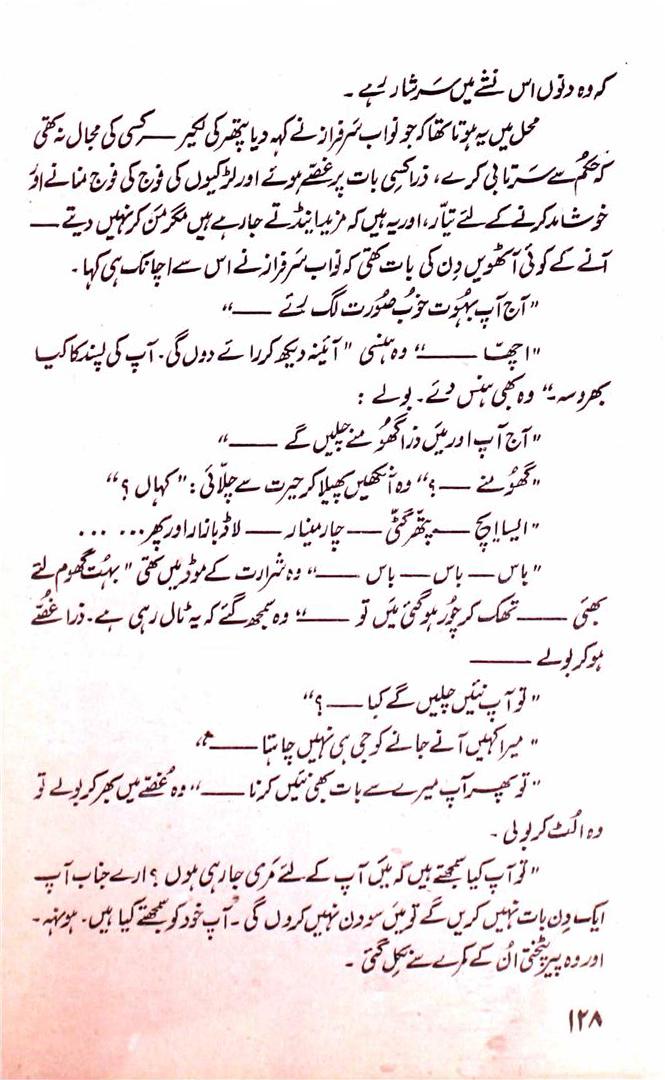 کہ وہ دنوں اس نشے میں سَرشار رہے ۔
محل میں یہ ہوتا تھا کہ جو نواب سَرفراز نے کہہ دیا پتھر کی لکیر —— کسی کی مجال نہ تھی
کہ حکم سے سَرتابی کرے، ذرا کسی بات پر غصّے ہوئے اور لڑکیوں کی فوج کی فوج منانے اور
خوشامد کرنے کے لئے تیّار، اور یہ ہیں کہ مزید اینڈتے جا رہے ہیں مگر مَن کر نہیں دیتے ——
آنے کے کوئی آٹھویں دِن کی بات تھی کہ نواب سَرفراز نے اس سے اچانک ہی کہا ۔
"آج آپ بہوُت خوبُ صوُرت لگ رَئے ——"
"اچھّا ——" وہ ہنسی "آئینہ دیکھ کر رائے دوں گی ۔ آپ کی پسند کا کیا
بھروسہ ۔" وہ بھی ہنس دئے ۔ بولے :
"آج آپ اور میَں ذرا گھوُمنے چلیں گے ——"
"گھوُمنے —— ؟" وہ آنکھیں پھیلا کر حیرت سے چلّائی : "کہاں ؟"
"ایسا اِچ —— پتھّر گٹّی —— چار مینار —— لاڈ بازار اور پھر ... ...
"باس —— باس —— باس ——" وہ شرارت کے موڈ میں تھی "بہُت گھوم لئے
بھئی —— تھک کر چوُر ہو گئی میَں تو ——" وہ سمجھ گئے کہ یہ ٹال رہی ہے ۔ ذرا غُصّے
ہو کر بولے ——
"تو آپ نئیں چلیں گے کیا —— ؟"
"میرا کہیں آنے جانے کو جی ہی نہیں چاہتا ——"
"تو پھر آپ میرے سے بات بھی نئیں کرنا ——" وہ غُصّے میں بھر کر بولے تو
وہ اُلٹ کر بولی ۔
"تو آپ کیا سمجھتے ہیں کہ میَں آپ کے لئے مَری جا رہی ہوں ؟ ارے جناب آپ
ایک دِن بات نہیں کریں گے تو میَں سو دن نہیں کروں گی ۔ آپ خود کو سمجھتے کیا ہیں ۔ ہونہہ ۔
اور وہ پیر پٹختی اُن کے کمرے سے نکل گئی ۔
۱۲۸